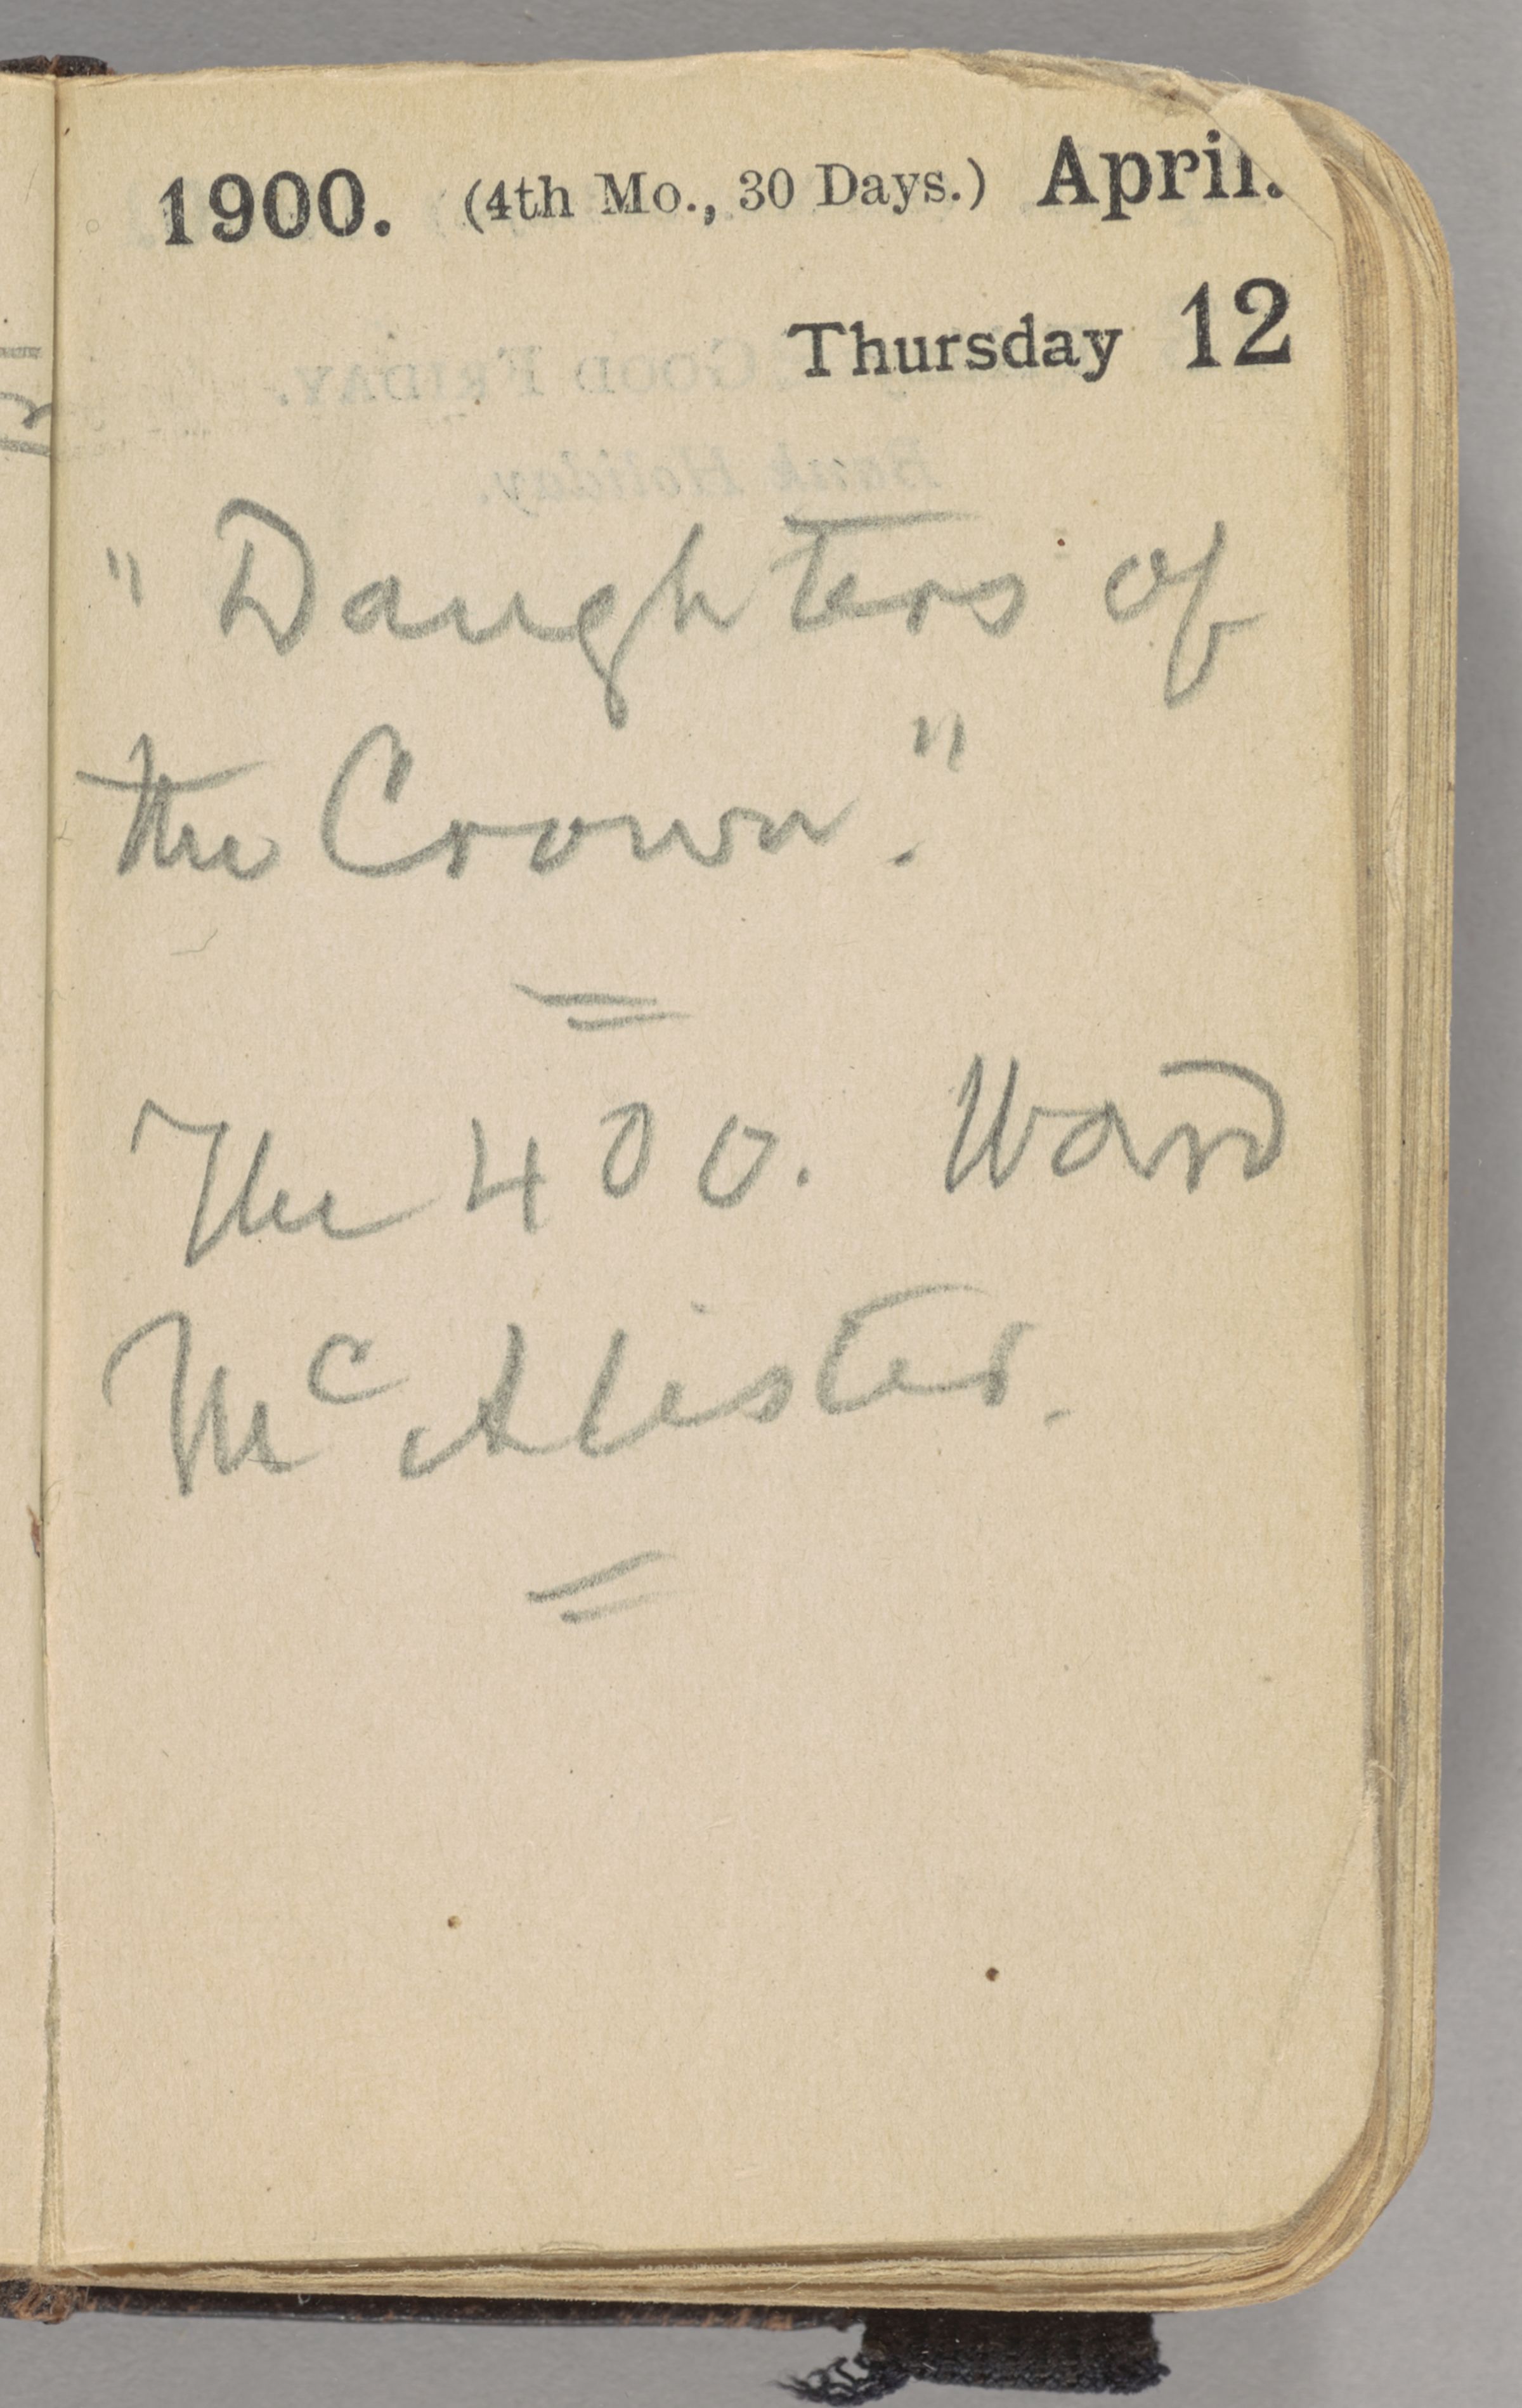 1900. (4th Mo., 30 Days.) April.
Thursday 12
"Daughters of
the Crown."
The 400. Ward
McAlister.